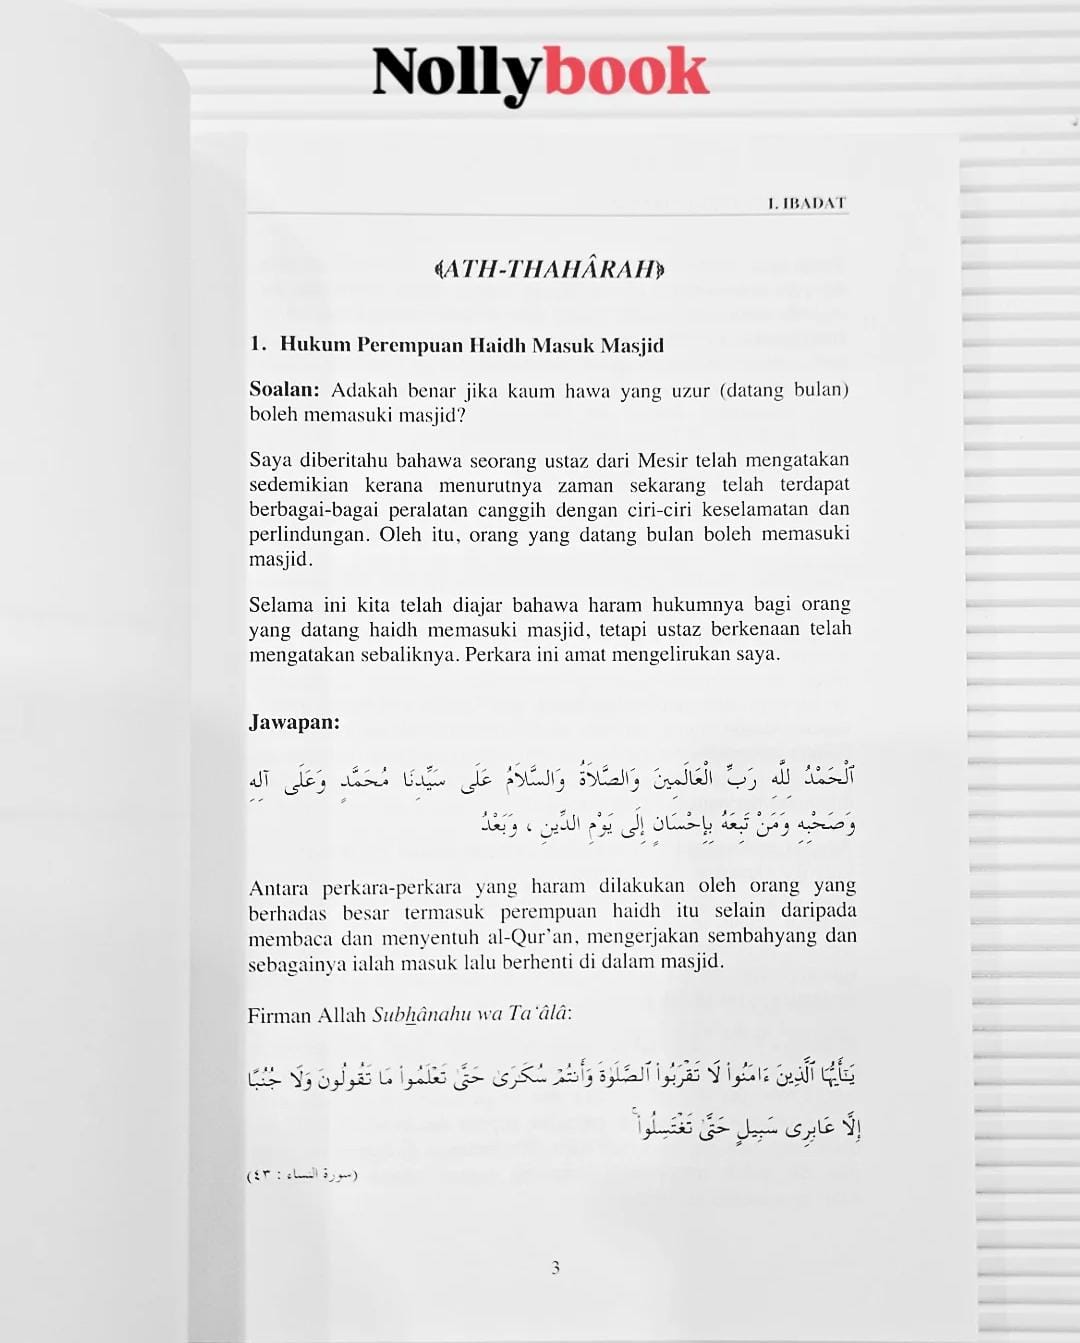 Nollybook
I. IBADAT
﴾ATH-THAHÂRAH﴿
1. Hukum Perempuan Haidh Masuk Masjid
Soalan: Adakah benar jika kaum hawa yang uzur (datang bulan)
boleh memasuki masjid?
Saya diberitahu bahawa seorang ustaz dari Mesir telah mengatakan
sedemikian kerana menurutnya zaman sekarang telah terdapat
berbagai-bagai peralatan canggih dengan ciri-ciri keselamatan dan
perlindungan. Oleh itu, orang yang datang bulan boleh memasuki
masjid.
Selama ini kita telah diajar bahawa haram hukumnya bagi orang
yang datang haidh memasuki masjid, tetapi ustaz berkenaan telah
mengatakan sebaliknya. Perkara ini amat mengelirukan saya.
Jawapan:
اَلْحَمْدُ لِلَّهِ رَبِّ الْعَالَمِينَ وَالصَّلَاةُ وَالسَّلَامُ عَلَى سَيِّدِنَا مُحَمَّدٍ وَعَلَى آلِهِ
وَصَحْبِهِ وَمَنْ تَبِعَهُ بِإِحْسَانٍ إِلَى يَوْمِ الدِّينِ ، وَبَعْدُ
Antara perkara-perkara yang haram dilakukan oleh orang yang
berhadas besar termasuk perempuan haidh itu selain daripada
membaca dan menyentuh al-Qur’an, mengerjakan sembahyang dan
sebagainya ialah masuk lalu berhenti di dalam masjid.
Firman Allah Subhânahu wa Ta‘âlâ:
يَـٰٓأَيُّهَا ٱلَّذِينَ ءَامَنُوا۟ لَا تَقْرَبُوا۟ ٱلصَّلَوٰةَ وَأَنتُمْ سُكَـٰرَىٰ حَتَّىٰ تَعْلَمُوا۟ مَا تَقُولُونَ وَلَا جُنُبًا
إِلَّا عَابِرِى سَبِيلٍ حَتَّىٰ تَغْتَسِلُوا۟ ۚ
(سورة النساء : ٤٣)
3